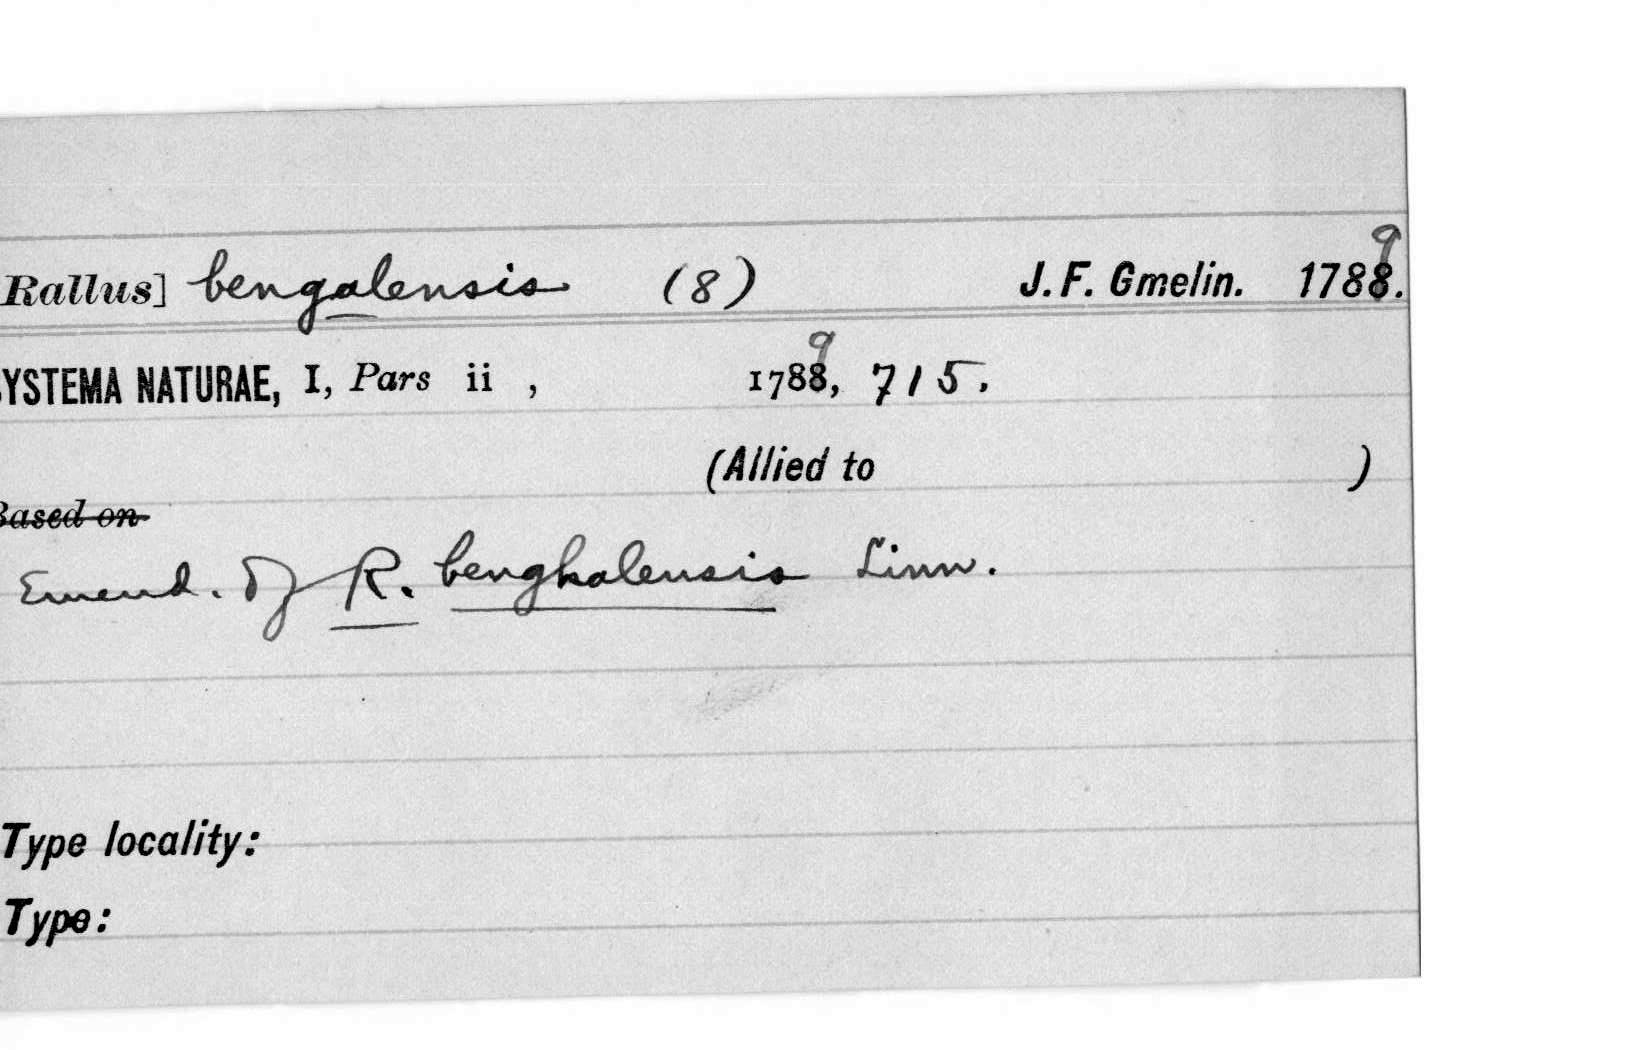 Rallus] bengalensis (8) J. F. Gmelin. 1788. 9
SYSTEMA NATURAE, I, Pars ii , 1788, 9 715.
(Allied to )
Based on
Emend. of R. benghalensis Linn.
Type locality:
Type: